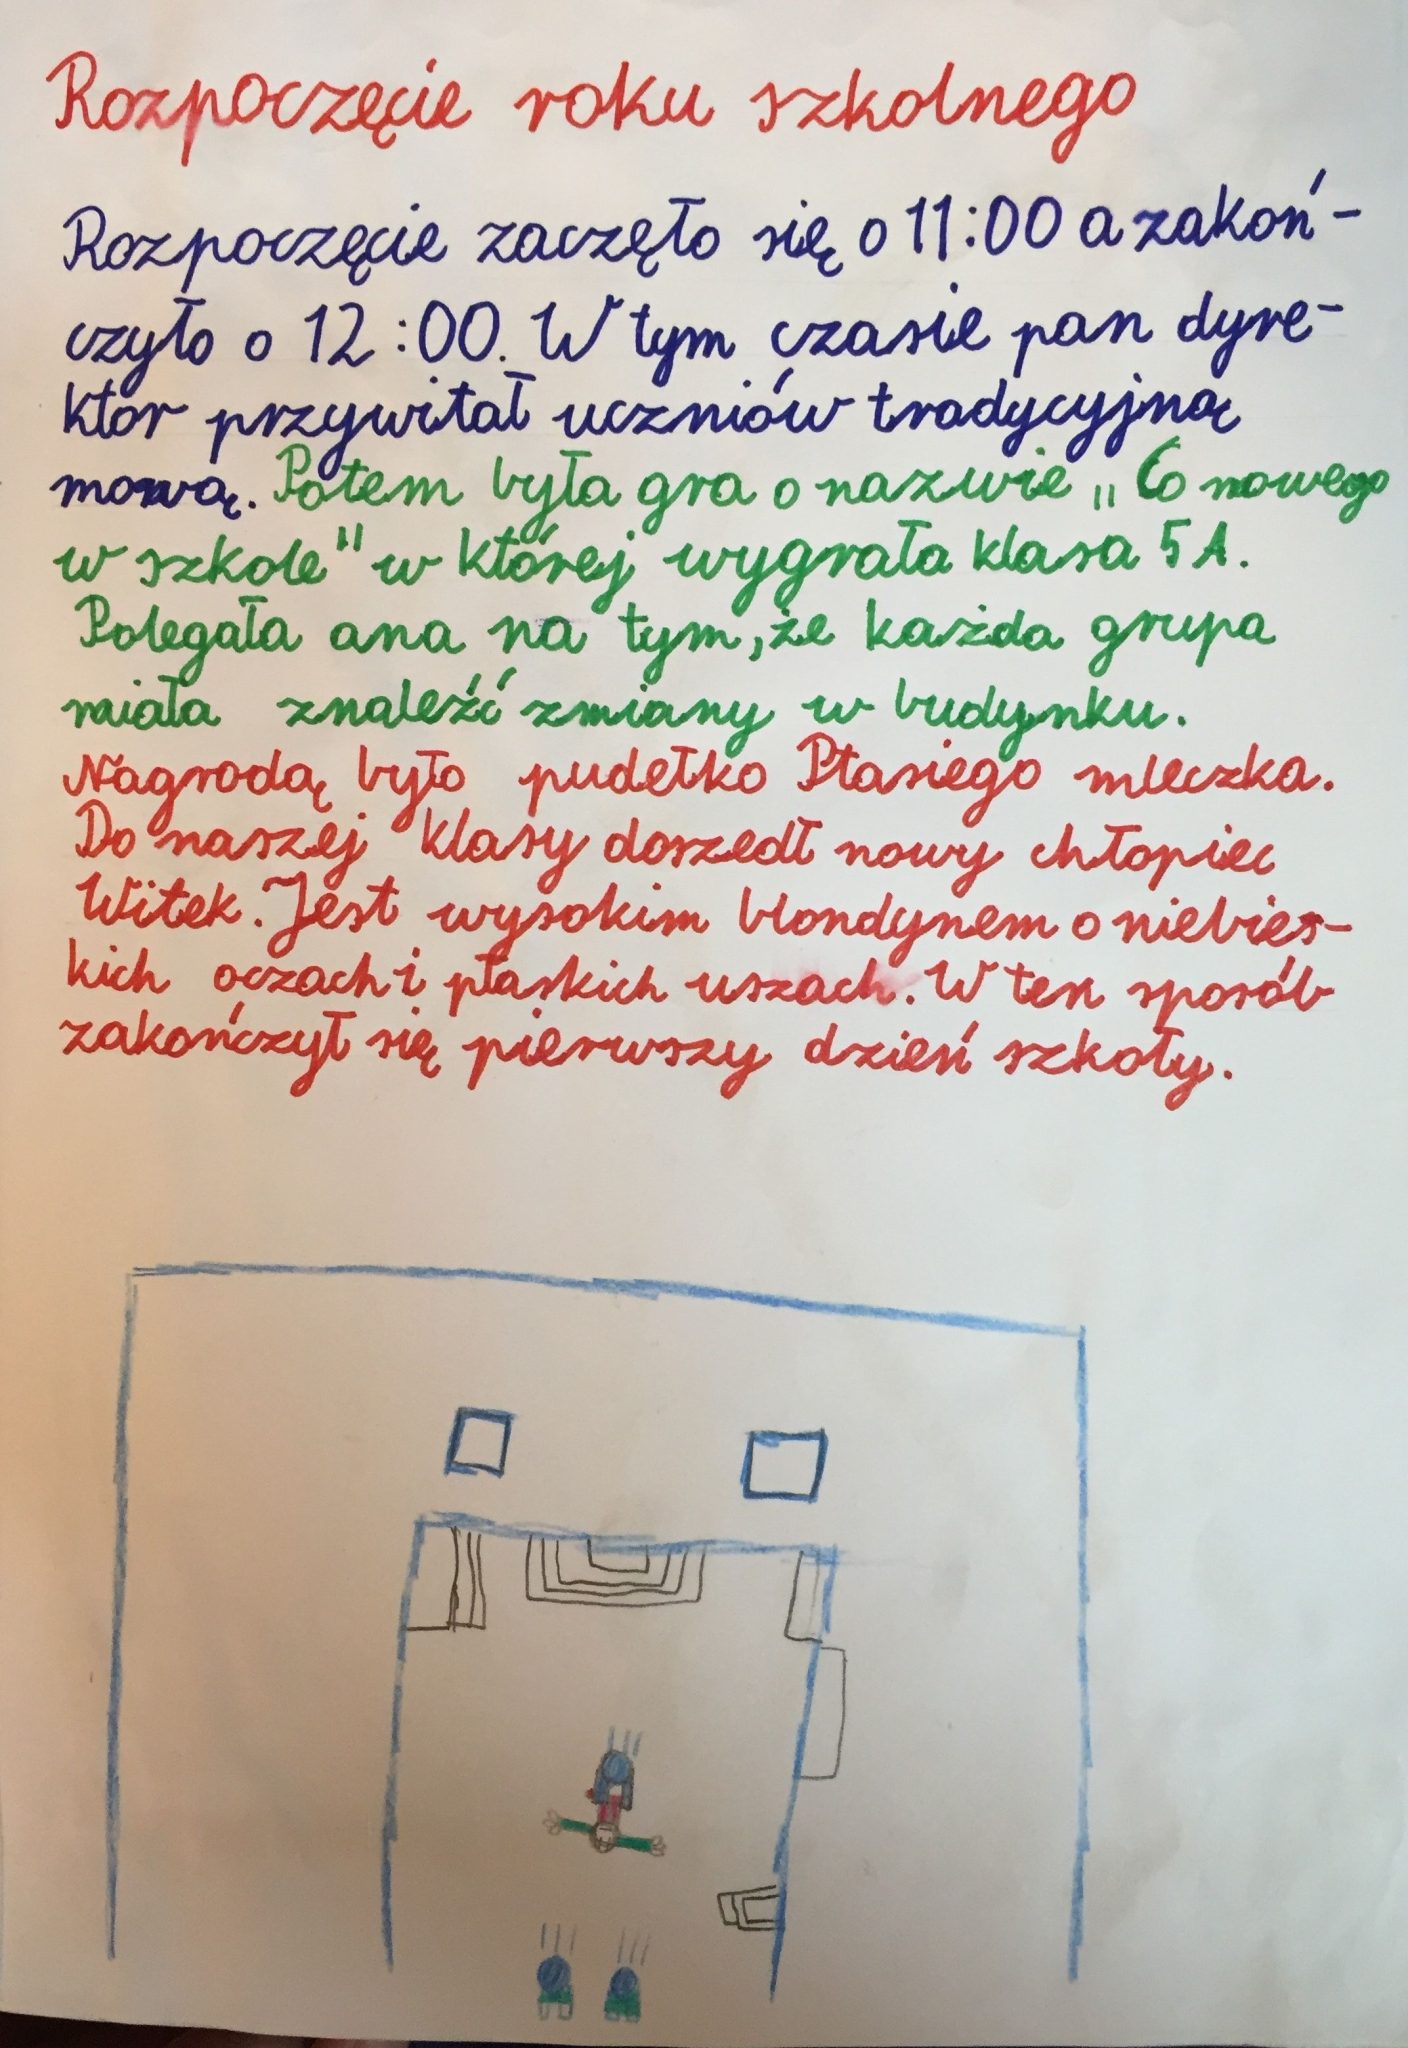 Rozpoczęcie roku szkolnego
Rozpoczęcie zaczęło się o 11:00 a zakoń-
czyło o 12:00. W tym czasie pan dyre-
ktor przywitał uczniów tradycyjną
mową. Potem była gra o nazwie „Co nowego
w szkole" w której wygrała klasa 5A.
Polegała ona na tym, że każda grupa
miała znaleźć zmiany w budynku.
Nagrodą było pudełko Ptasiego mleczka.
Do naszej klasy doszedł nowy chłopiec
Witek. Jest wysokim blondynem o niebies-
kich oczach i płaskich uszach. W ten sposób
zakończył się pierwszy dzień szkoły.